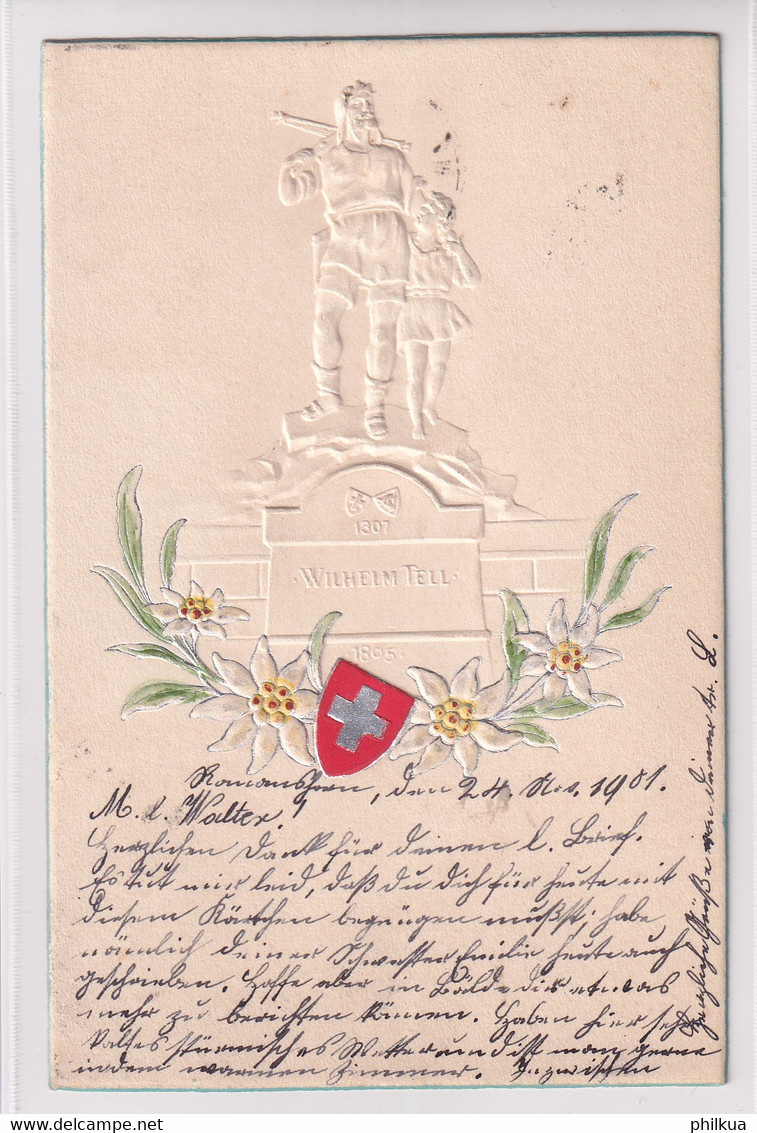 1307
· WILHELM TELL ·
· 1895 ·
Romanshorn, den 24. Nov. 1901.
M. l. Walter!
Herzlichen Dank für deinen l. Brief.
Es tut mir leid, daß du dich für heute mit
diesem Kärtchen begnügen mußst; habe
nämlich deiner Schwester Emilie heute auch
geschrieben. Hoffe aber in Bälde dir etwas
mehr zu berichten können. Haben hier sehr
kaltes stürmisches Wetter und ist man gerne
in dem warmen Zimmer. Inzwischen
herzliche Grüße von deiner tr. L.
philkua